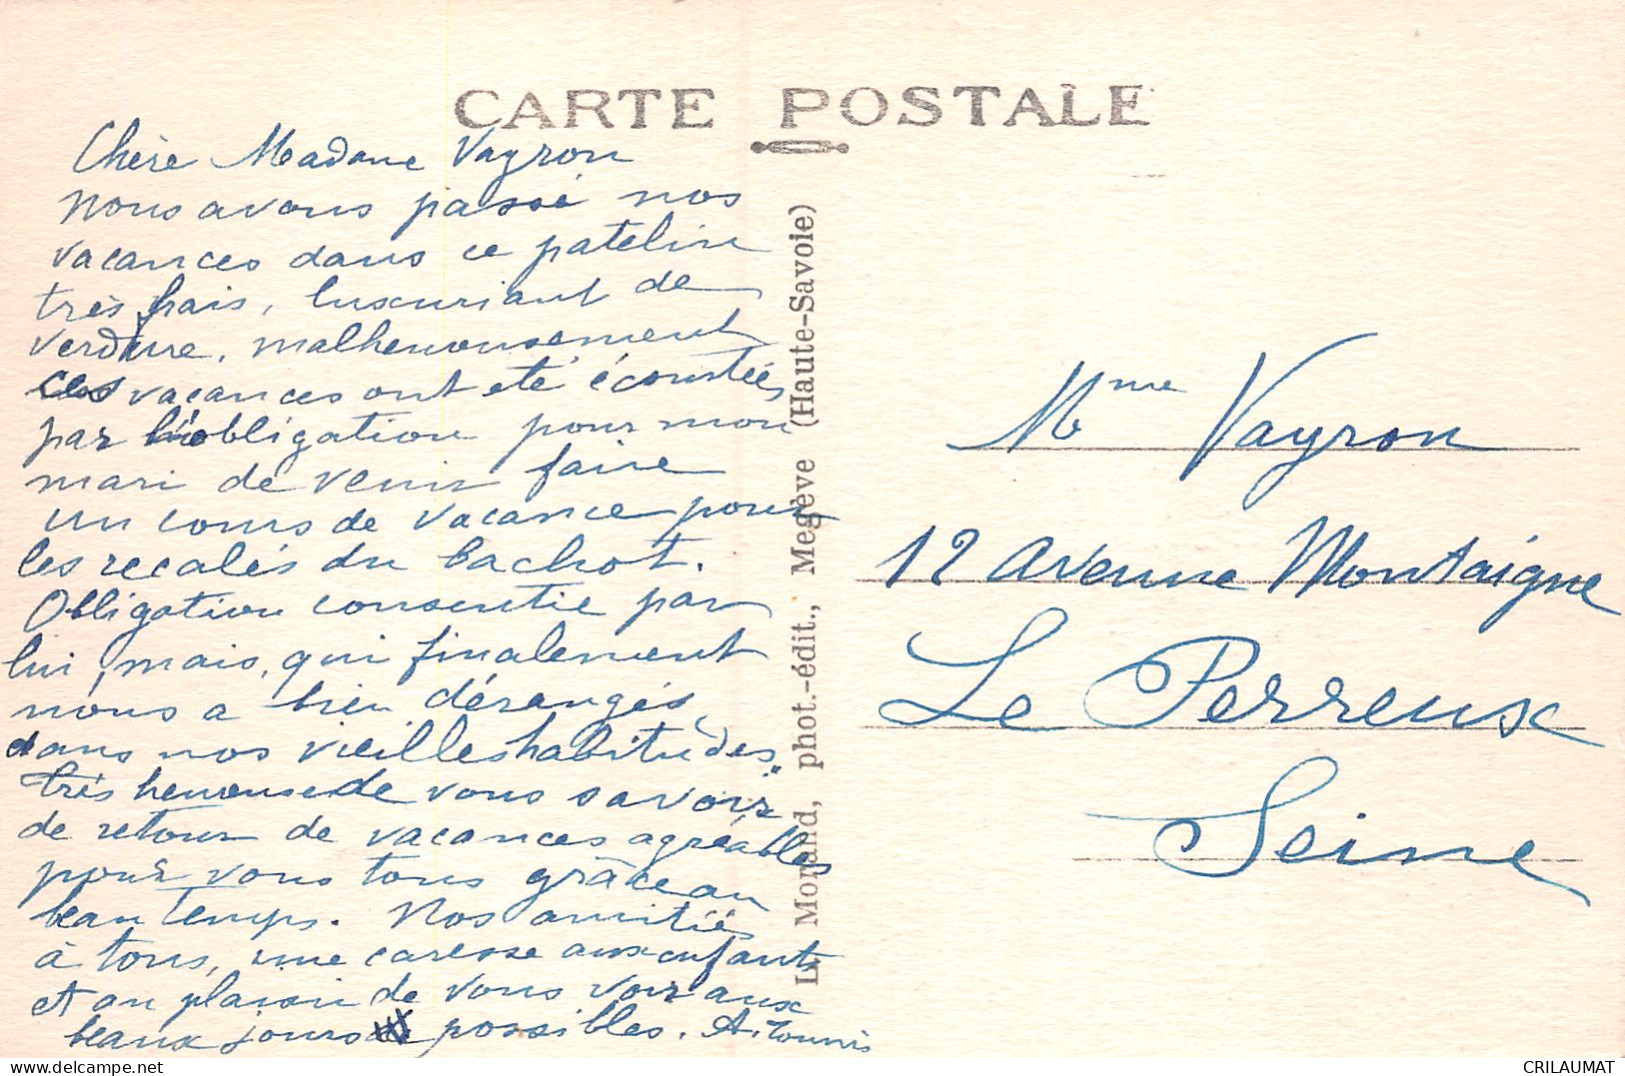 CARTE POSTALE
Chère Madame Vayron
Nous avons passé nos
vacances dans ce patelin
très frais, luxuriant de
verdure, malheureusement
ces vacances ont été écourtées
par l'obligation pour mon
mari de venir faire
un cours de vacance pour
les recalés du bachot.
Obligation consentie par
lui, mais, qui finalement
nous a bien dérangés
dans nos vieilles habitudes.
Très heureuse de vous savoir
de retour de vacances agréables
pour vous tous grâce au
beau temps. Nos amitiés
à tous, une caresse aux enfants
et au plaisir de vous voir aux
beaux jours possibles.
L. Morand, phot.-édit., Megève (Haute-Savoie)
Mme Vayron
12 Avenue Montaigne
Le Perreux
Seine
CRILAUMAT